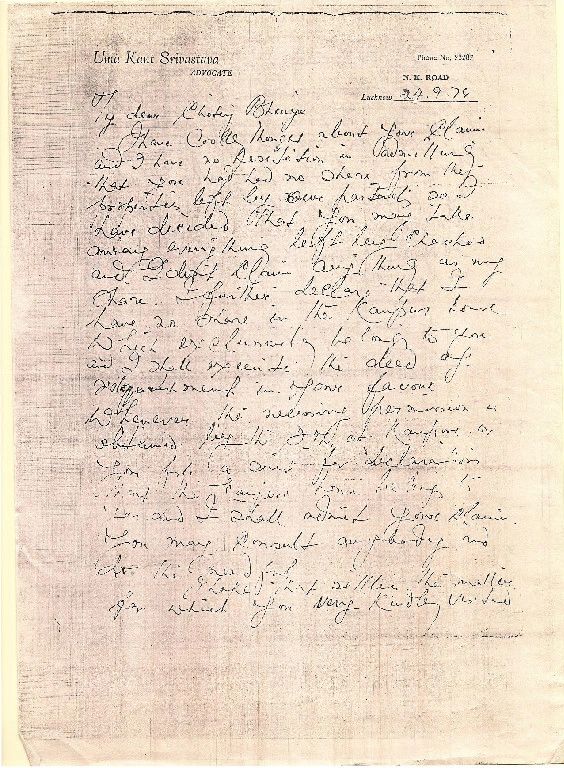 Uma Kant Srivastava
ADVOCATE
Phone No.
N. K. ROAD
Lucknow 24.9.76
My dear Chotey Bhaiya
I have about your claim
and I have no hesitation in admitting
that you had no share from the
properties left by our parents and
have decided that you may take
away everything left by
and I don't claim anything as my
share. I further declare that I
have no share in the Kanpur house
which exclusively belongs to you
and I shall execute the deed of
relinquishment in your favour
whenever the necessary permission is
obtained the of Kanpur or
you file a suit for declaration
that the Kanpur house belongs to
you and I shall admit your claim.
You may consult anybody and
do the needful.
I that settles the matter
for which you very kindly